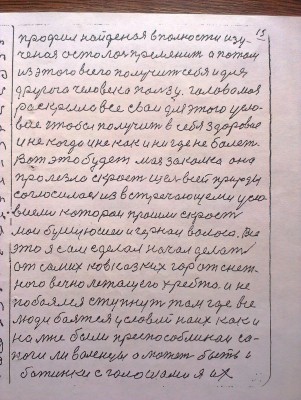 15
профил найденая вполности изу-
ченая осталоя применит а потом
из этого всего получит себя и для
другого человека ползу. голова моя
раскрыло все сваи для этого усло-
вие чтобы получит в себя здоровие
и не когда и не как и ни где не балет.
Вот это будет мая закалка она
пролезло скрост щел всей природы
согласилас из встречающему усло-
вием которои прошли скрост
мои
и чернаи волоса. Все
это я сам сделал начал делат
от самих кавказких гор от снеж-
ного вечно летащего хребта и не
побоялся ступнут там где все
люди баятся условий на их как и
на мне были преспособлинаи са-
поги ли валенци а может быть и
батинки с галошами я их